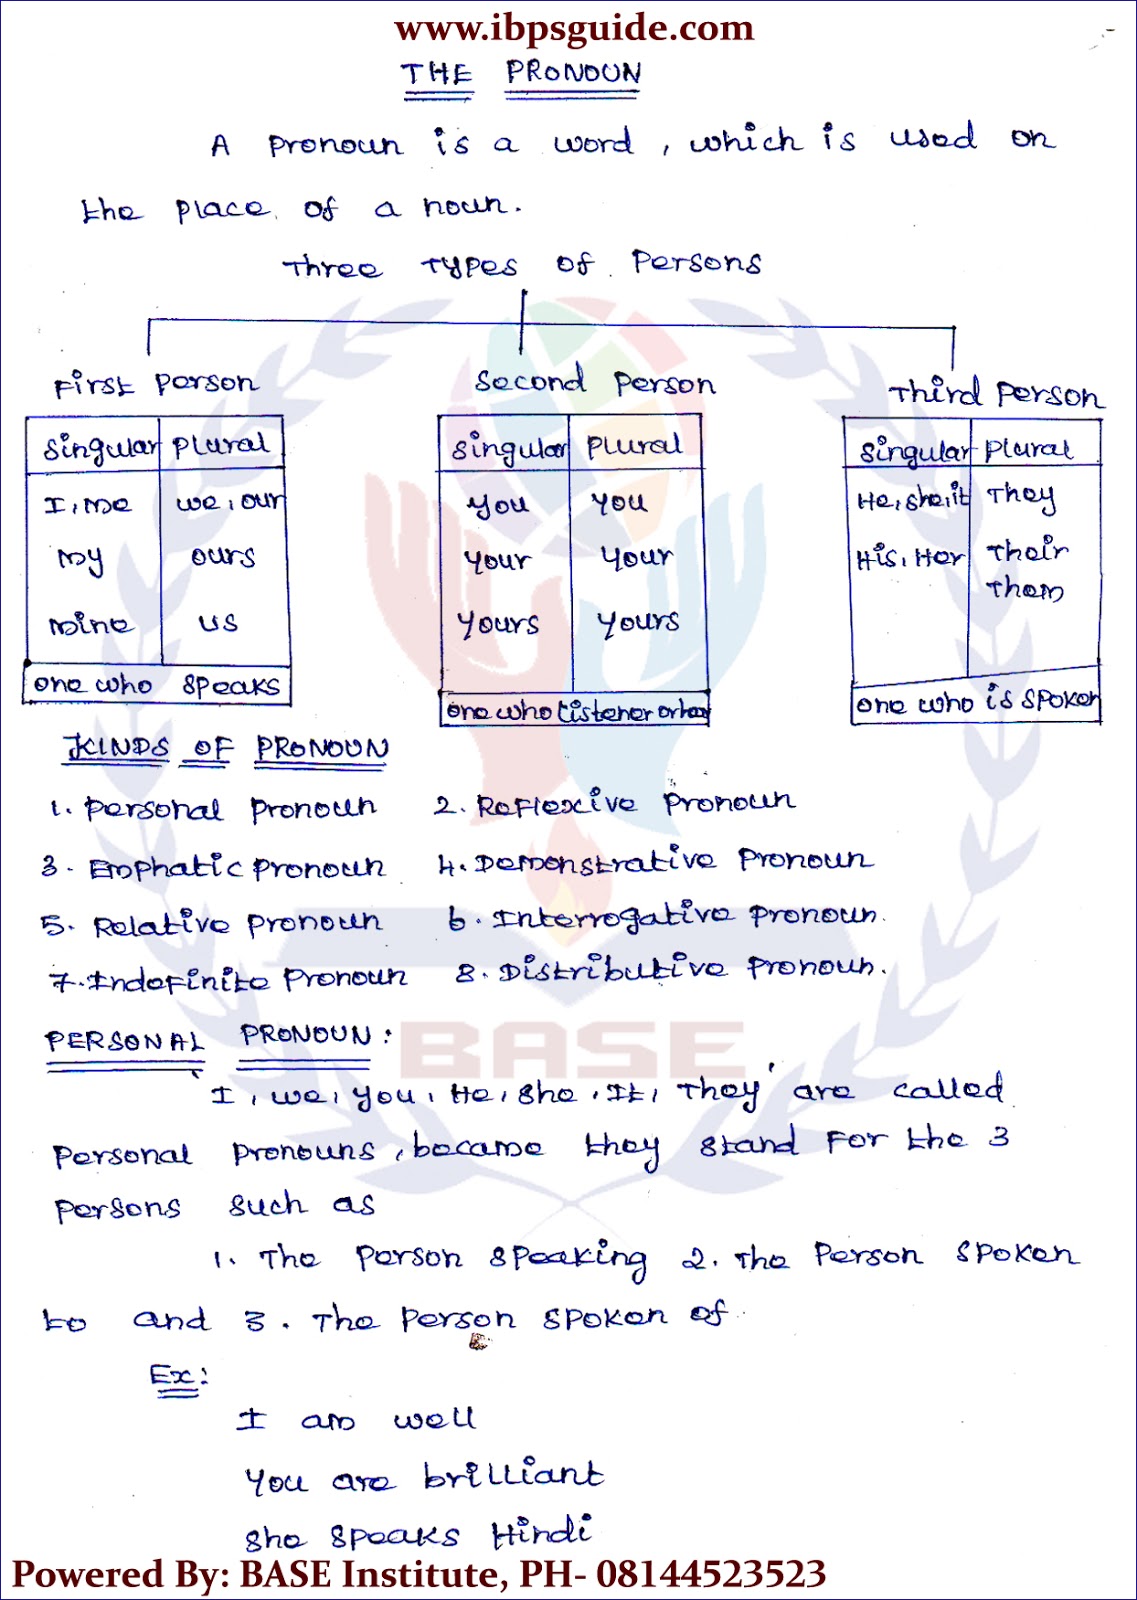 www.ibpsguide.com
THE PRONOUN
A pronoun is a word, which is used on
the place of a noun.
Three Types of Persons
First person
Second person
Third person
singular plural
I, me we, our
my ours
mine us
one who speaks
singular plural
you you
your your
yours yours
one who listener or
singular plural
He, she, it They
His, Her Their
Them
one who is spoken
KINDS OF PRONOUN
1. personal pronoun 2. Reflexive pronoun
3. Emphatic pronoun 4. Demonstrative pronoun
5. Relative pronoun 6. Interrogative pronoun.
7. Indefinite pronoun 8. Distributive pronoun.
PERSONAL PRONOUN :
'I, we, you, He, she, It, They' are called
personal pronouns, became they stand for the 3
persons such as
1. The person speaking 2. The person spoken
to and 3. The person spoken of.
Ex:
I am well
you are brilliant
she speaks Hindi
BASE
Powered By: BASE Institute, PH- 08144523523